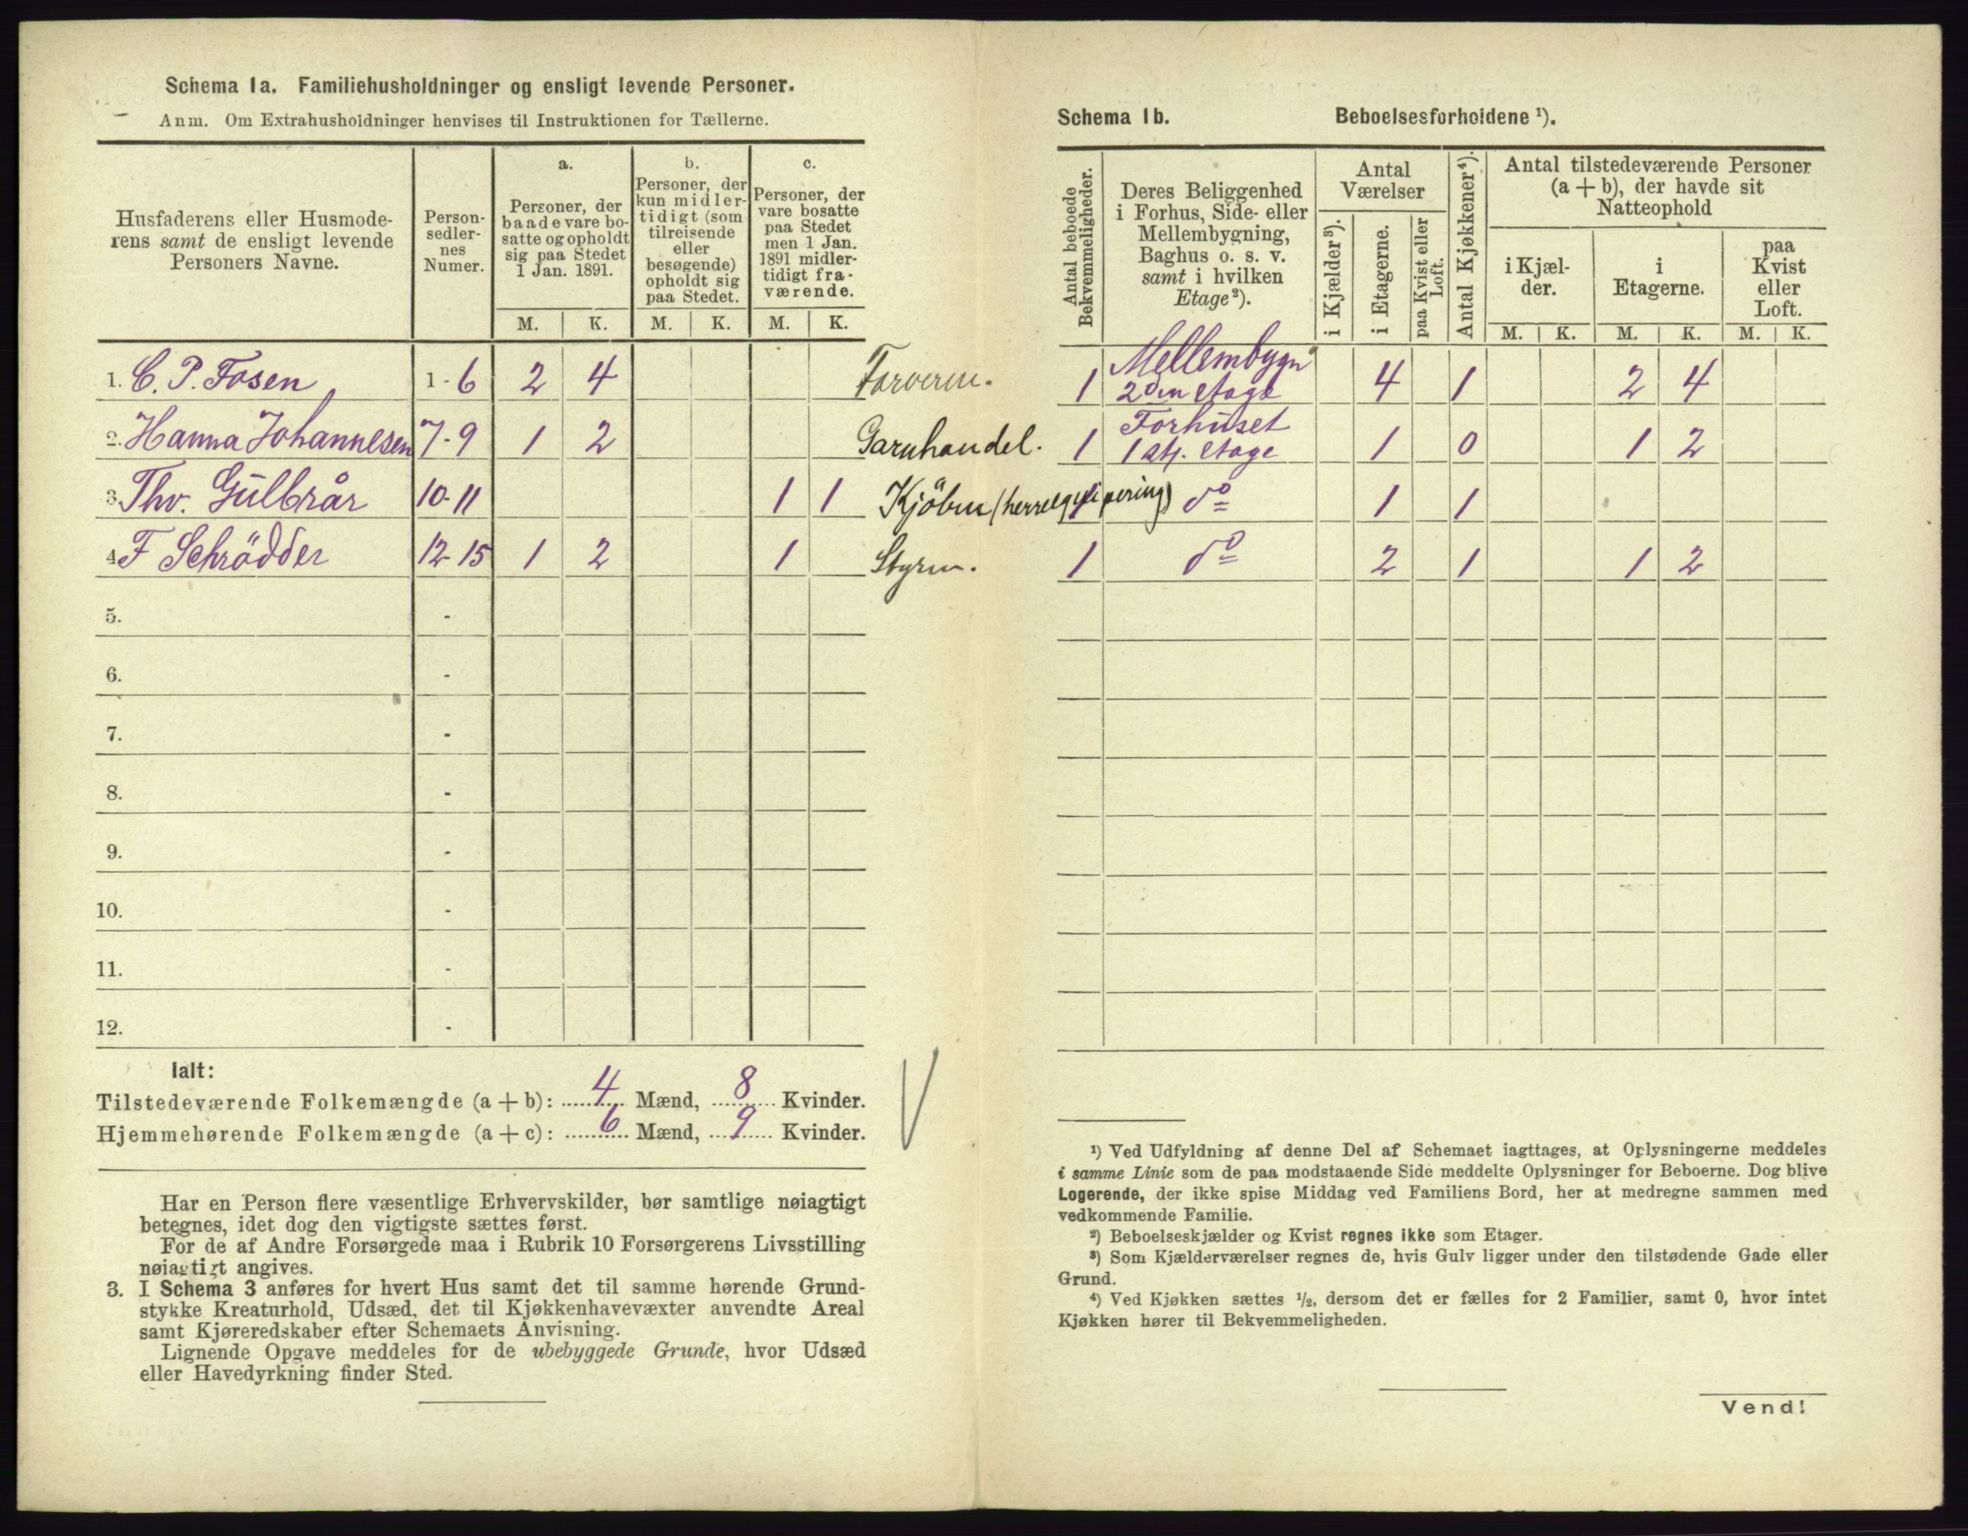 Schema 1a. Familiehusholdninger og ensligt levende Personer.
Anm. Om Extrahusholdninger henvises til Instruktionen for Tællerne.
Husfaderens eller Husmode-
rens samt de ensligt levende
Personers Navne.
Person-
sedler-
nes
Numer.
a.
Personer, der
baade vare bo-
satte og opholdt
sig paa Stedet
1 Jan. 1891.
b.
Personer, der
kun midler-
tidigt (som
tilreisende
eller
besøgende)
opholdt sig
paa Stedet.
c.
Personer, der
vare bosatte
paa Stedet
men 1 Jan.
1891 midler-
tidigt fra-
værende.
M. K. M. K. M. K.
1. C. P. Fosen 1 - 6 2 4 Farveren.
2. Hanna Johannesen 7 - 9 1 2 Garnhandel.
3. Thv. Gülbrår 10 - 11 1 1 Kjöbm (herreequipering)
4. F Schrödder 12 - 15 1 2 1 Styrm.
5. -
6. -
7. -
8. -
9. -
10. -
11. -
12. -
Ialt:
Tilstedeværende Folkemængde (a + b): 4 Mænd, 8 Kvinder.
Hjemmehørende Folkemængde (a + c): 6 Mænd, 9 Kvinder.
Har en Person flere væsentlige Erhvervskilder, bør samtlige nøiagtigt
betegnes, idet dog den vigtigste sættes først.
For de af Andre Forsørgede maa i Rubrik 10 Forsørgerens Livsstilling
nøiagtigt angives.
3. I Schema 3 anføres for hvert Hus samt det til samme hørende Grund-
stykke Kreaturhold, Udsæd, det til Kjøkkenhavevæxter anvendte Areal
samt Kjøreredskaber efter Schemaets Anvisning.
Lignende Opgave meddeles for de ubebyggede Grunde, hvor Udsæd
eller Havedyrkning finder Sted.
Schema 1b. Beboelsesforholdene ¹).
Antal beboede
Bekvemmeligheder.
Deres Beliggenhed
i Forhus, Side- eller
Mellembygning,
Baghus o. s. v.
samt i hvilken
Etage²).
Antal
Værelser
i Kjælder³).
i Etagerne.
paa Kvist eller
Loft.
Antal Kjøkkener⁴).
Antal tilstedeværende Personer
(a + b), der havde sit
Natteophold
i Kjæl-
der.
i
Etagerne.
paa
Kvist
eller
Loft.
M. K. M. K. M. K.
1 Mellembygn
2den etage 4 1 2 4
1 Forhuset
1 st. etage 1 0 1 2
1 do 1 1
1 do 2 1 1 2
¹) Ved Udfyldning af denne Del af Schemaet iagttages, at Oplysningerne meddeles
i samme Linie som de paa modstaaende Side meddelte Oplysninger for Beboerne. Dog blive
Logerende, der ikke spise Middag ved Familiens Bord, her at medregne sammen med
vedkommende Familie.
²) Beboelseskjælder og Kvist regnes ikke som Etager.
³) Som Kjælderværelser regnes de, hvis Gulv ligger under den tilstødende Gade eller
Grund.
⁴) Ved Kjøkken sættes ½, dersom det er fælles for 2 Familier, samt 0, hvor intet
Kjøkken hører til Bekvemmeligheden.
Vend!